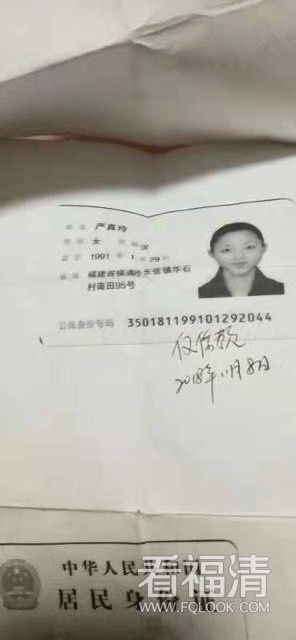 姓名 严真玲
性别 女 民族 汉
出生 1991 年 1 月 29 日
住址 福建省福清市东张镇华石
村南田95号
公民身份号码 350181199101292044
仅信贷
2018年11月8日
中华人民共和国
居民身份证
看福清
WWW.FQLOOK.COM